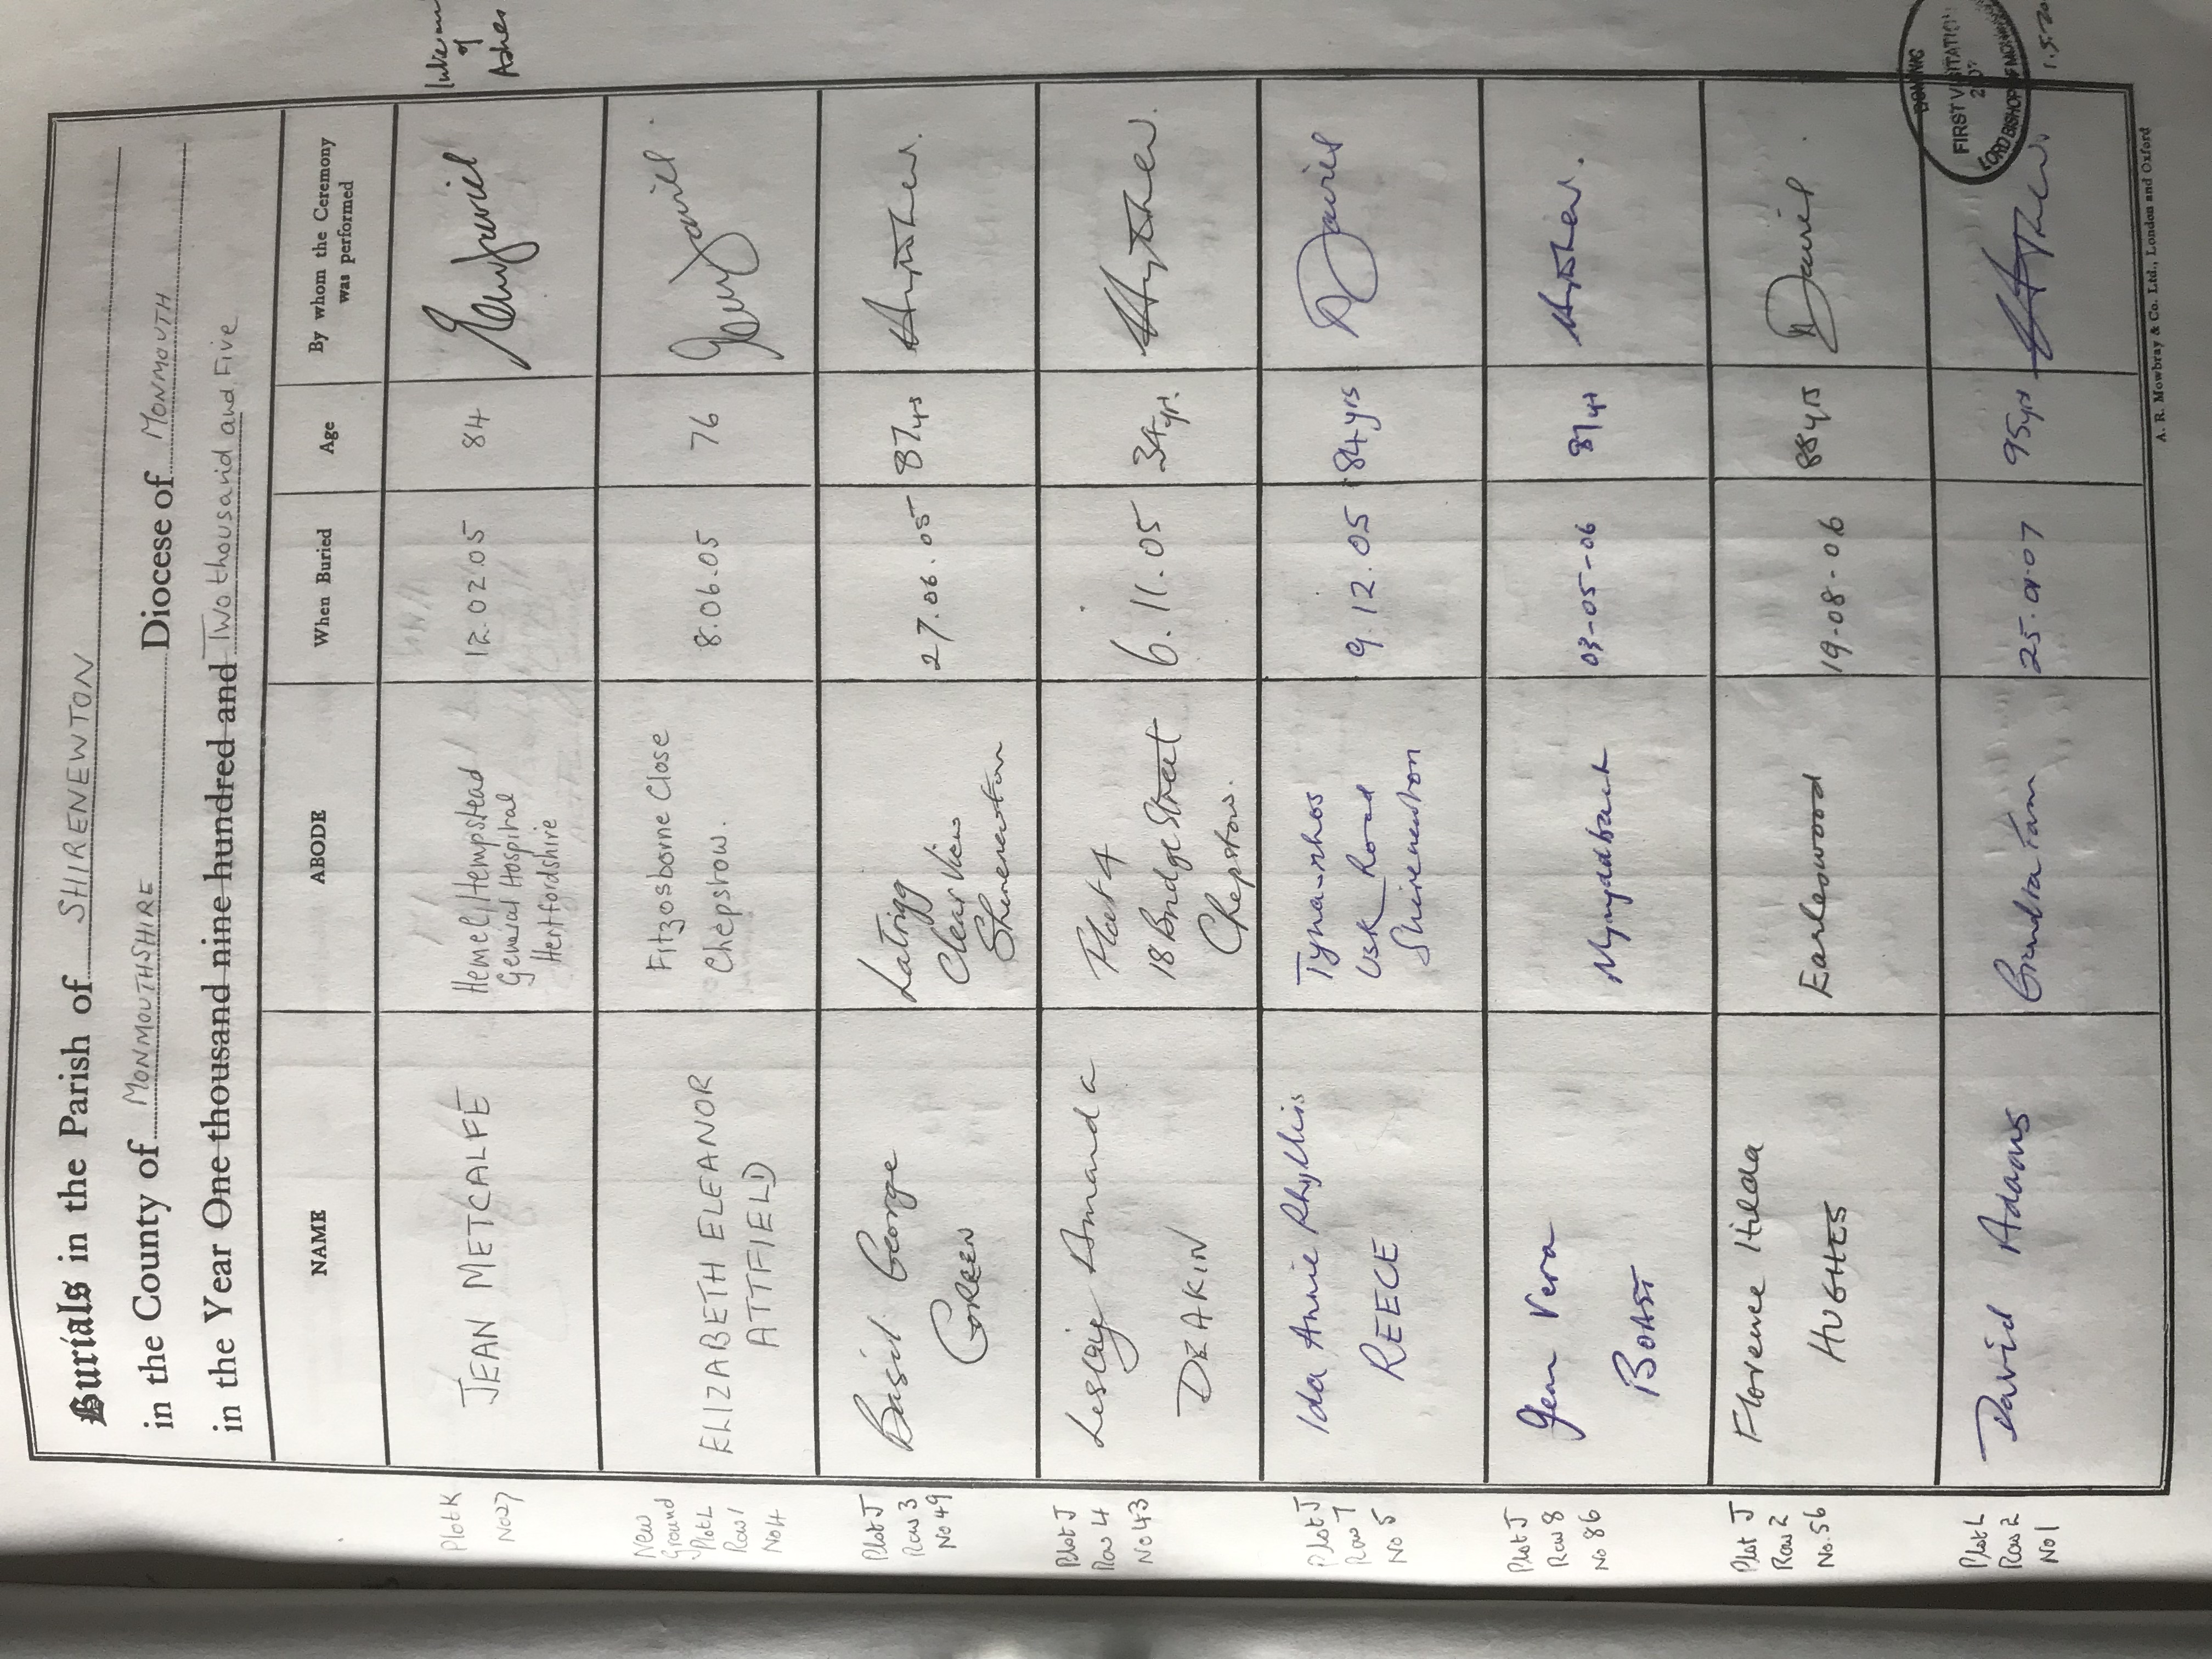 Burials in the Parish of SHIRENEWTON
in the County of MONMOUTHSHIRE Diocese of MONMOUTH
in the Year One thousand nine hundred and Two thousand and Five
NAME
ABODE
When Buried
Age
By whom the Ceremony
was performed
Plot K
No27
JEAN METCALFE
Hemel Hempstead
General Hospital
Hertfordshire
12.02.05
84
of
Ashes
New
Ground
Plot L
Row 1
No 4
ELIZABETH ELEANOR
ATTFIELD
Fitzosborne Close
Chepstow.
8.06.05
76
Plot J
Row 3
No 49
Basil George
GREEN
Latrigg
Clear View
Shirenewton
27.06.05
87yrs
Plot J
Row 4
No 43
Lesley Amanda
DEAKIN
Flat 4
18 Bridge Street
Chepstow.
6.11.05
34yr.
Plot J
Row 7
No 5
Ida Annie Rhyllis
REECE
Tyna-rhos
Usk Road
Shirenewton
9.12.05
84yrs
Davies
Plot J
Row 8
No 86
Jean Vera
BOAST
Mynyddbach
03-05-06
87yr
Plot J
Row 2
No. 56
Florence Hilda
HUGHES
Earlswood
19-08-06
88yrs
Davies
Plot L
Row 2
No 1
David Adams
Farm
25.01.07
95yrs
DOMINIC
FIRST VISITATION
2007
LORD BISHOP OF MONMOUTH
A. R. Mowbray & Co. Ltd., London and Oxford